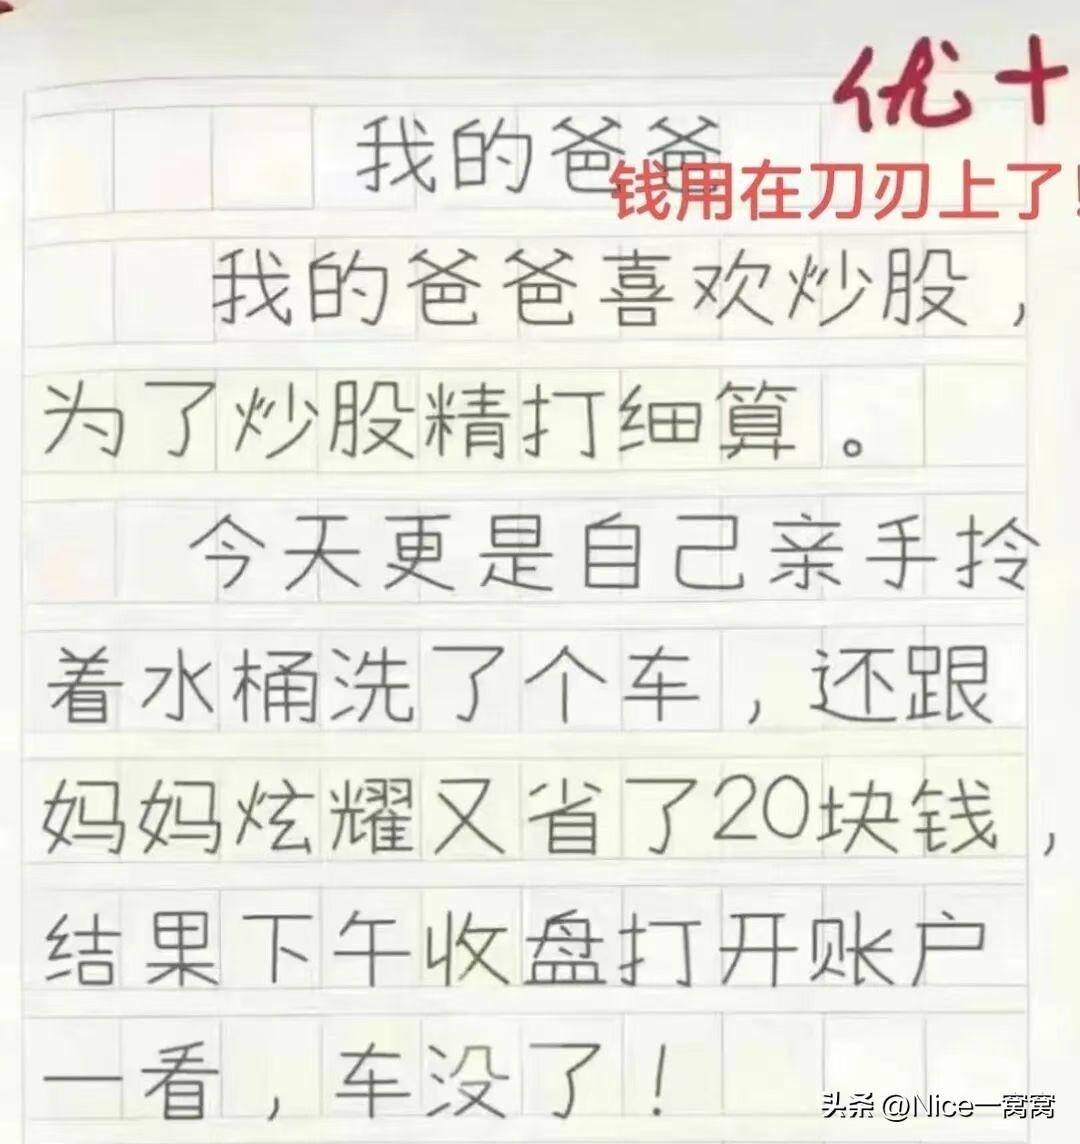 优+
我的爸爸
钱用在刀刃上了!
我的爸爸喜欢炒股,
为了炒股精打细算。
今天更是自己亲手拎
着水桶洗了个车,还跟
妈妈炫耀又省了20块钱,
结果下午收盘打开账户
一看,车没了!
头条 @Nice一窝窝